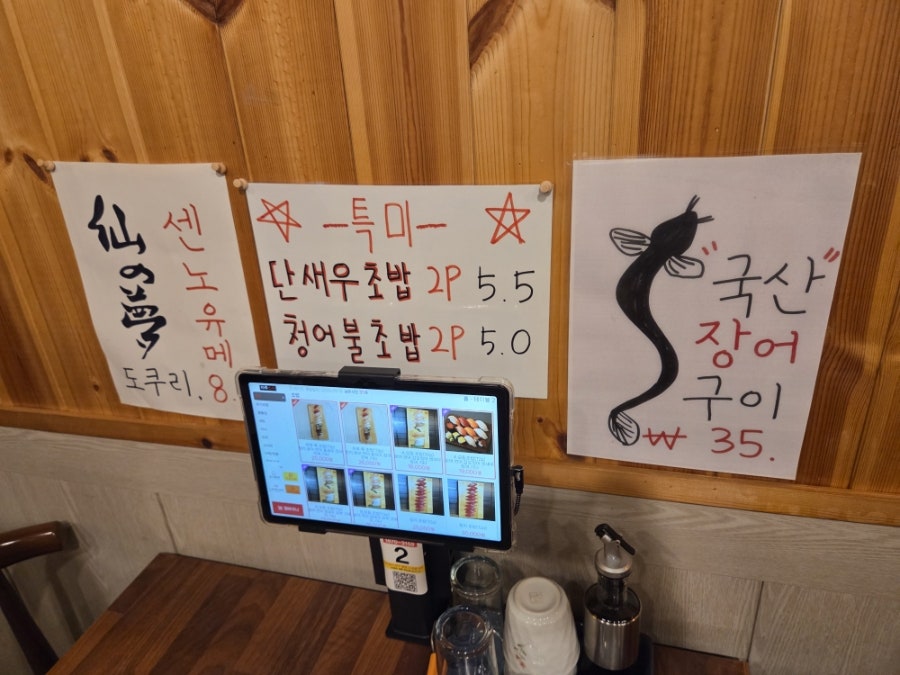 仙の夢
센노유메
도쿠리. 8.
-특미-
단새우초밥 2P 5.5
청어불초밥 2P 5.0
"국산"
장어
구이
₩ 35.
2